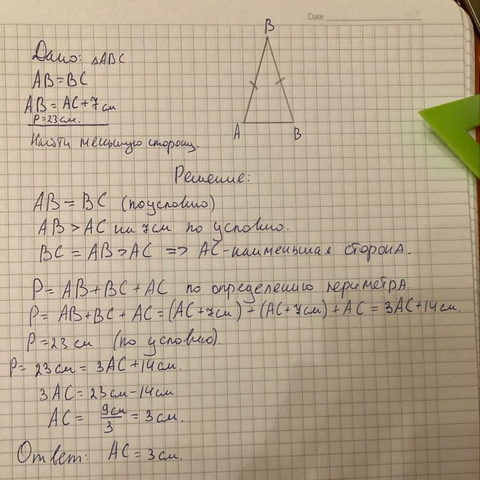 Date
B
Дано: △ABC
AB=BC
AB=AC+7см
P=23см.
Найти меньшую сторону.
A B
Решение:
AB = BC (по условию)
AB > AC на 7см по условию.
BC = AB > AC => AC - наименьшая сторона.
P = AB + BC + AC по определению периметра
P = AB + BC + AC = (AC+7см) + (AC+7см) + AC = 3AC + 14см.
P = 23 см (по условию).
P = 23см = 3AC + 14см.
3AC = 23см - 14см
AC = 9см/3 = 3см.
Ответ: AC = 3см.